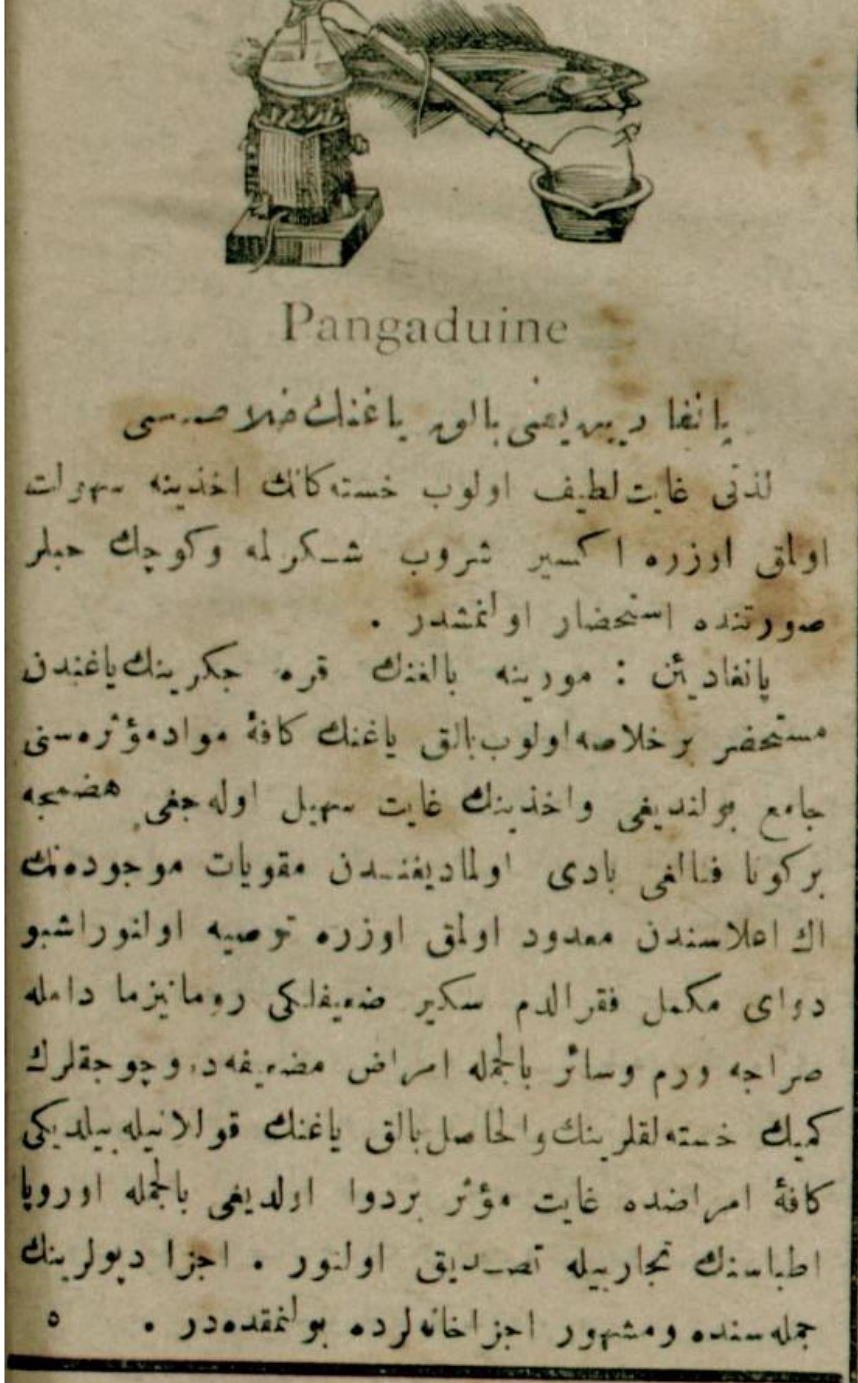 Pangaduine
پانغا دیین یعنی بالق یاغنك خلاصه‌سی
لذتی غایت لطیف اولوب خسته‌کانك اخذینه سهولت
اولمق اوزره اکسیر شروب شکرلمه وکوچك حبلر
صورتنده استحضار اولنمشدر .
پانغادیئن : مورینه بالغنك قره جکرینك یاغندن
مستحضر برخلاصه اولوب بالق یاغنك کافهٔ مواد مؤثره‌سنی
جامع بولندیغی واخذینك غایت سهیل اوله‌جغی هضمجه
برکونا فنالغی بادی اولمادیغندن مقویات موجوده‌نك
اك اعلاسندن معدود اولمق اوزره توصیه اولنور اشبو
دوای مکمل فقرالدم سکیر ضعیفلکی رومانیزما دامله
صراجه ورم وسائر بالجمله امراض مضعیفه‌ده وچوجقلرك
کمیك خسته‌لقلرینك والحاصل بالق یاغنك قوللانیله‌بیلدیکی
کافهٔ امراضده غایت مؤثر بردوا اولدیغی بالجمله اوروپا
اطباسنك تجاربیله تصدیق اولنور . اجزا دپولرینك
جمله‌سنده ومشهور اجزاخانه‌لرده بولنمقده‌در . ٥